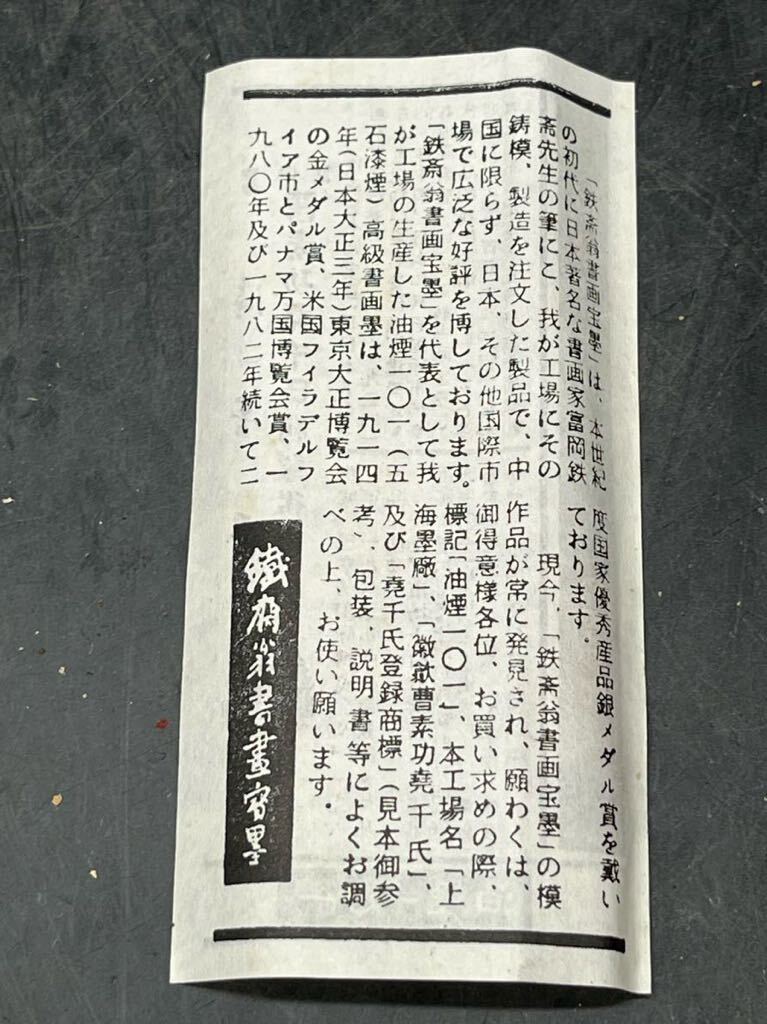 「鉄斎翁書画宝墨」は、本世紀
の初代に日本著名な書画家富岡鉄
斎先生の筆にこ、我が工場にその
鋳模、製造を注文した製品で、中
国に限らず、日本、その他国際市
場で広泛な好評を博しております。
「鉄斎翁書画宝墨」を代表として我
が工場の生産した油煙一〇一(五
石漆煙)高級書画墨は、一九一四
年(日本大正三年)東京大正博覧会
の金メダル賞、米国フイラデルフ
イア市とパナマ万国博覧会賞、一
九八〇年及び一九八二年続いて二
度国家優秀産品銀メダル賞を戴い
ております。
現今、「鉄斎翁書画宝墨」の模
作品が常に発見され、願わくは、
御得意様各位、お買い求めの際、
標記「油煙一〇一」、本工場名「上
海墨廠」、「徽歙曹素功堯千氏」、
及び「堯千氏登録商標」(見本御参
考)、包装、説明書等によくお調
べの上、お使い願います。
鐵斎翁書畫寳墨